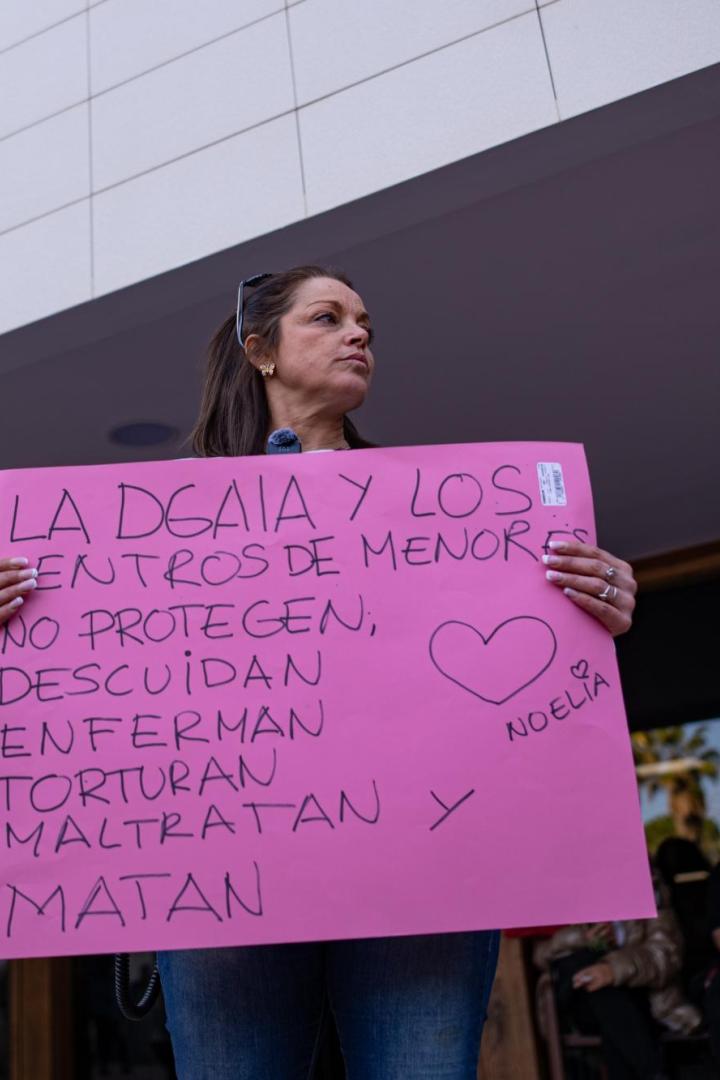 LA DGAIA Y LOS
ENTROS DE MENORES
NO PROTEGEN;
DESCUIDAN
ENFERMAN
TORTURAN
MALTRATAN Y
MATAN
NOELIA